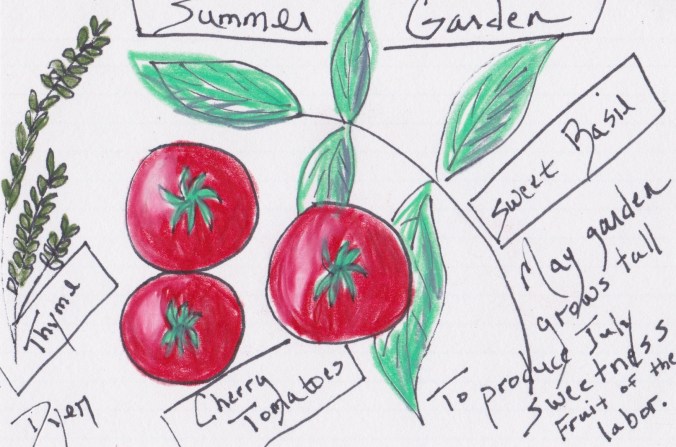 Summer Garden
Sweet Basil
Thyme
Cherry
Tomatoes
May garden
grows tall
To produce July
sweetness
Fruit of the
labor.